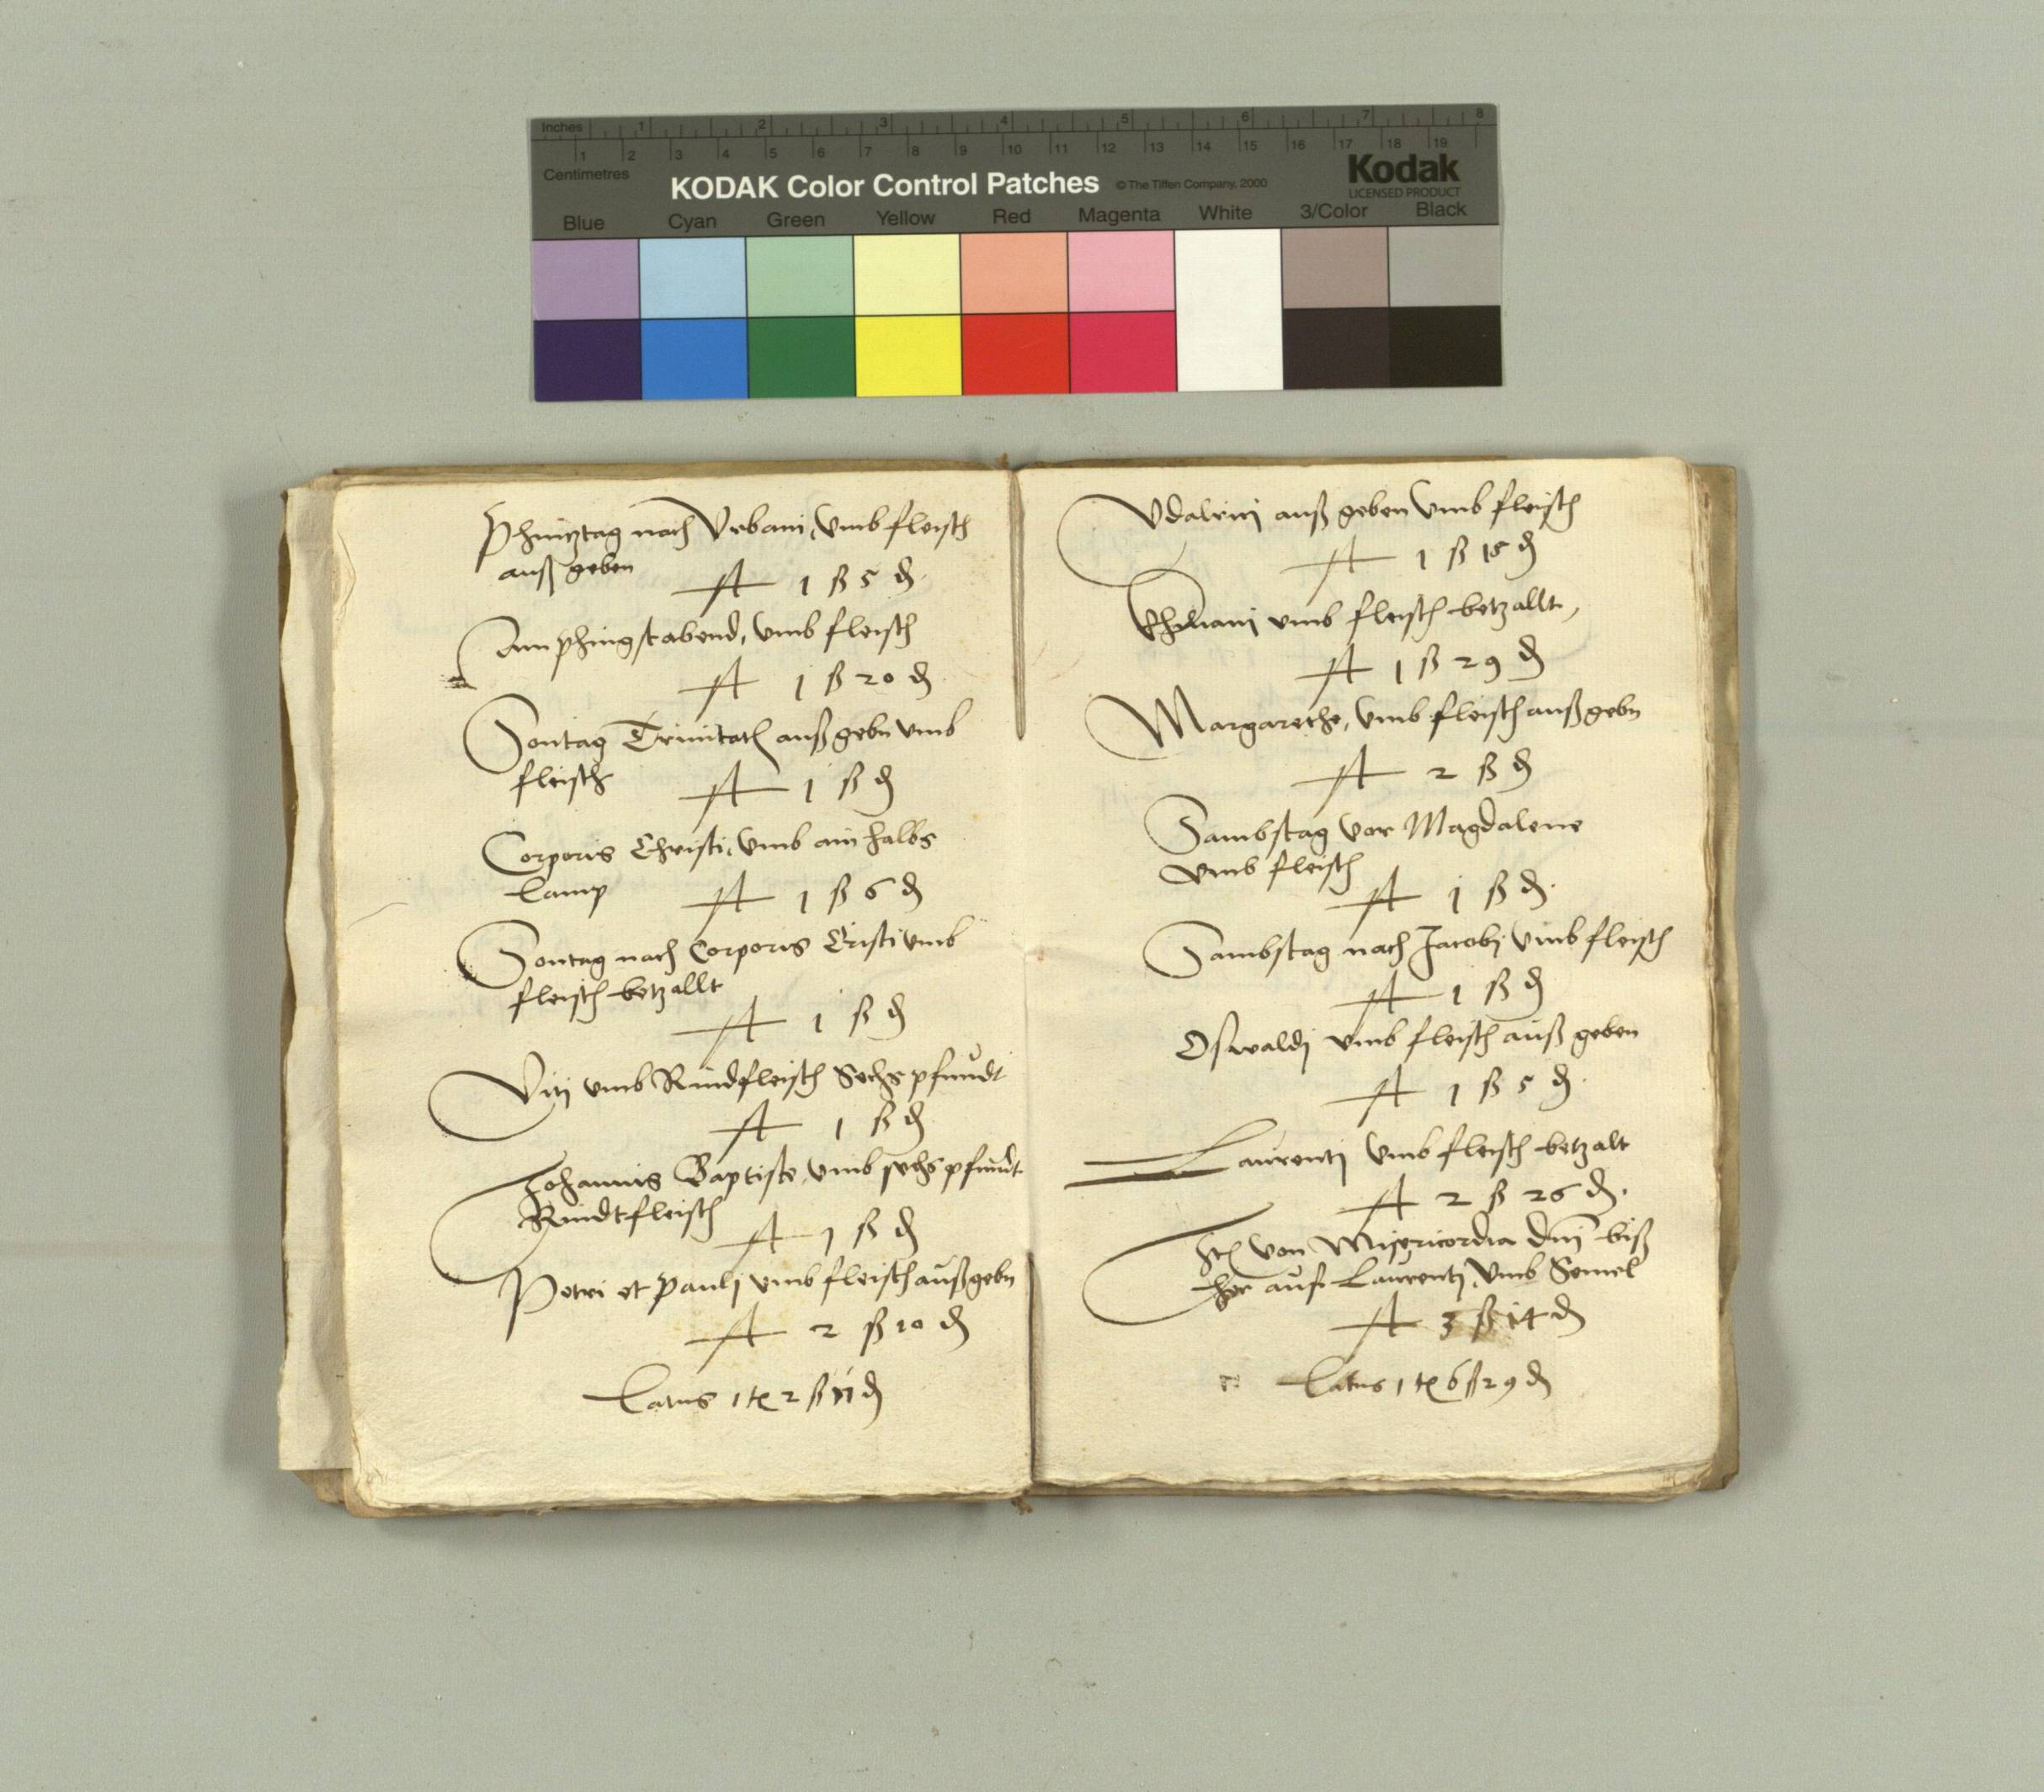 Inches 1 2 3 4 5 6 7 8
1 2 3 4 5 6 7 8 9 10 11 12 13 14 15 16 17 18 19
Centimetres
KODAK Color Control Patches © The Tiffen Company, 2000
Kodak
LICENSED PRODUCT
Blue Cyan Green Yellow Red Magenta White 3/Color Black
Phintztag nach Vrbani, vmb fleisch
auß geben
A 1 ß 5 ₰
Am phingstabend, vmb fleisch
A 1 ß 20 ₰
Sontag Trinitatis außgebn vmb
fleisch
A 1 ß ₰
Corporis Christi, vmb ain halbs
lamp
A 1 ß 6 ₰
Sontag nach Corporis Cristi vmb
fleisch betzallt
A 1 ß ₰
Viti vmb Rindfleisch Sechs pfundt
A 1 ß ₰
Johannis Baptiste, vmb sechs pfundt
Rindtfleisch
A 1 ß ₰
Petri et pauli vmb fleisch außgebn
A 2 ß 10 ₰
Latus 1 ℔ 2 ß 11 ₰
Vdalrici auß geben vmb fleisch
A 1 ß 15 ₰
Khiliani vmb fleisch betzallt,
A 1 ß 29 ₰
Margarethe, vmb fleisch außgebn
A 2 ß ₰
Sambstag vor Magdalene
vmb fleisch
A 1 ß ₰
Sambstag nach Jacobj vmb fleisch
A 1 ß ₰
Oswaldj vmb fleisch auß geben
A 1 ß 5 ₰
Laurentj vmb fleisch betzalt
A 2 ß 26 ₰
Itē von Misericordia dnī biß
her auf Laurentj, vmb Semel
A 3 ß 14 ₰
Latus 1 ℔ 6 ß 29 ₰